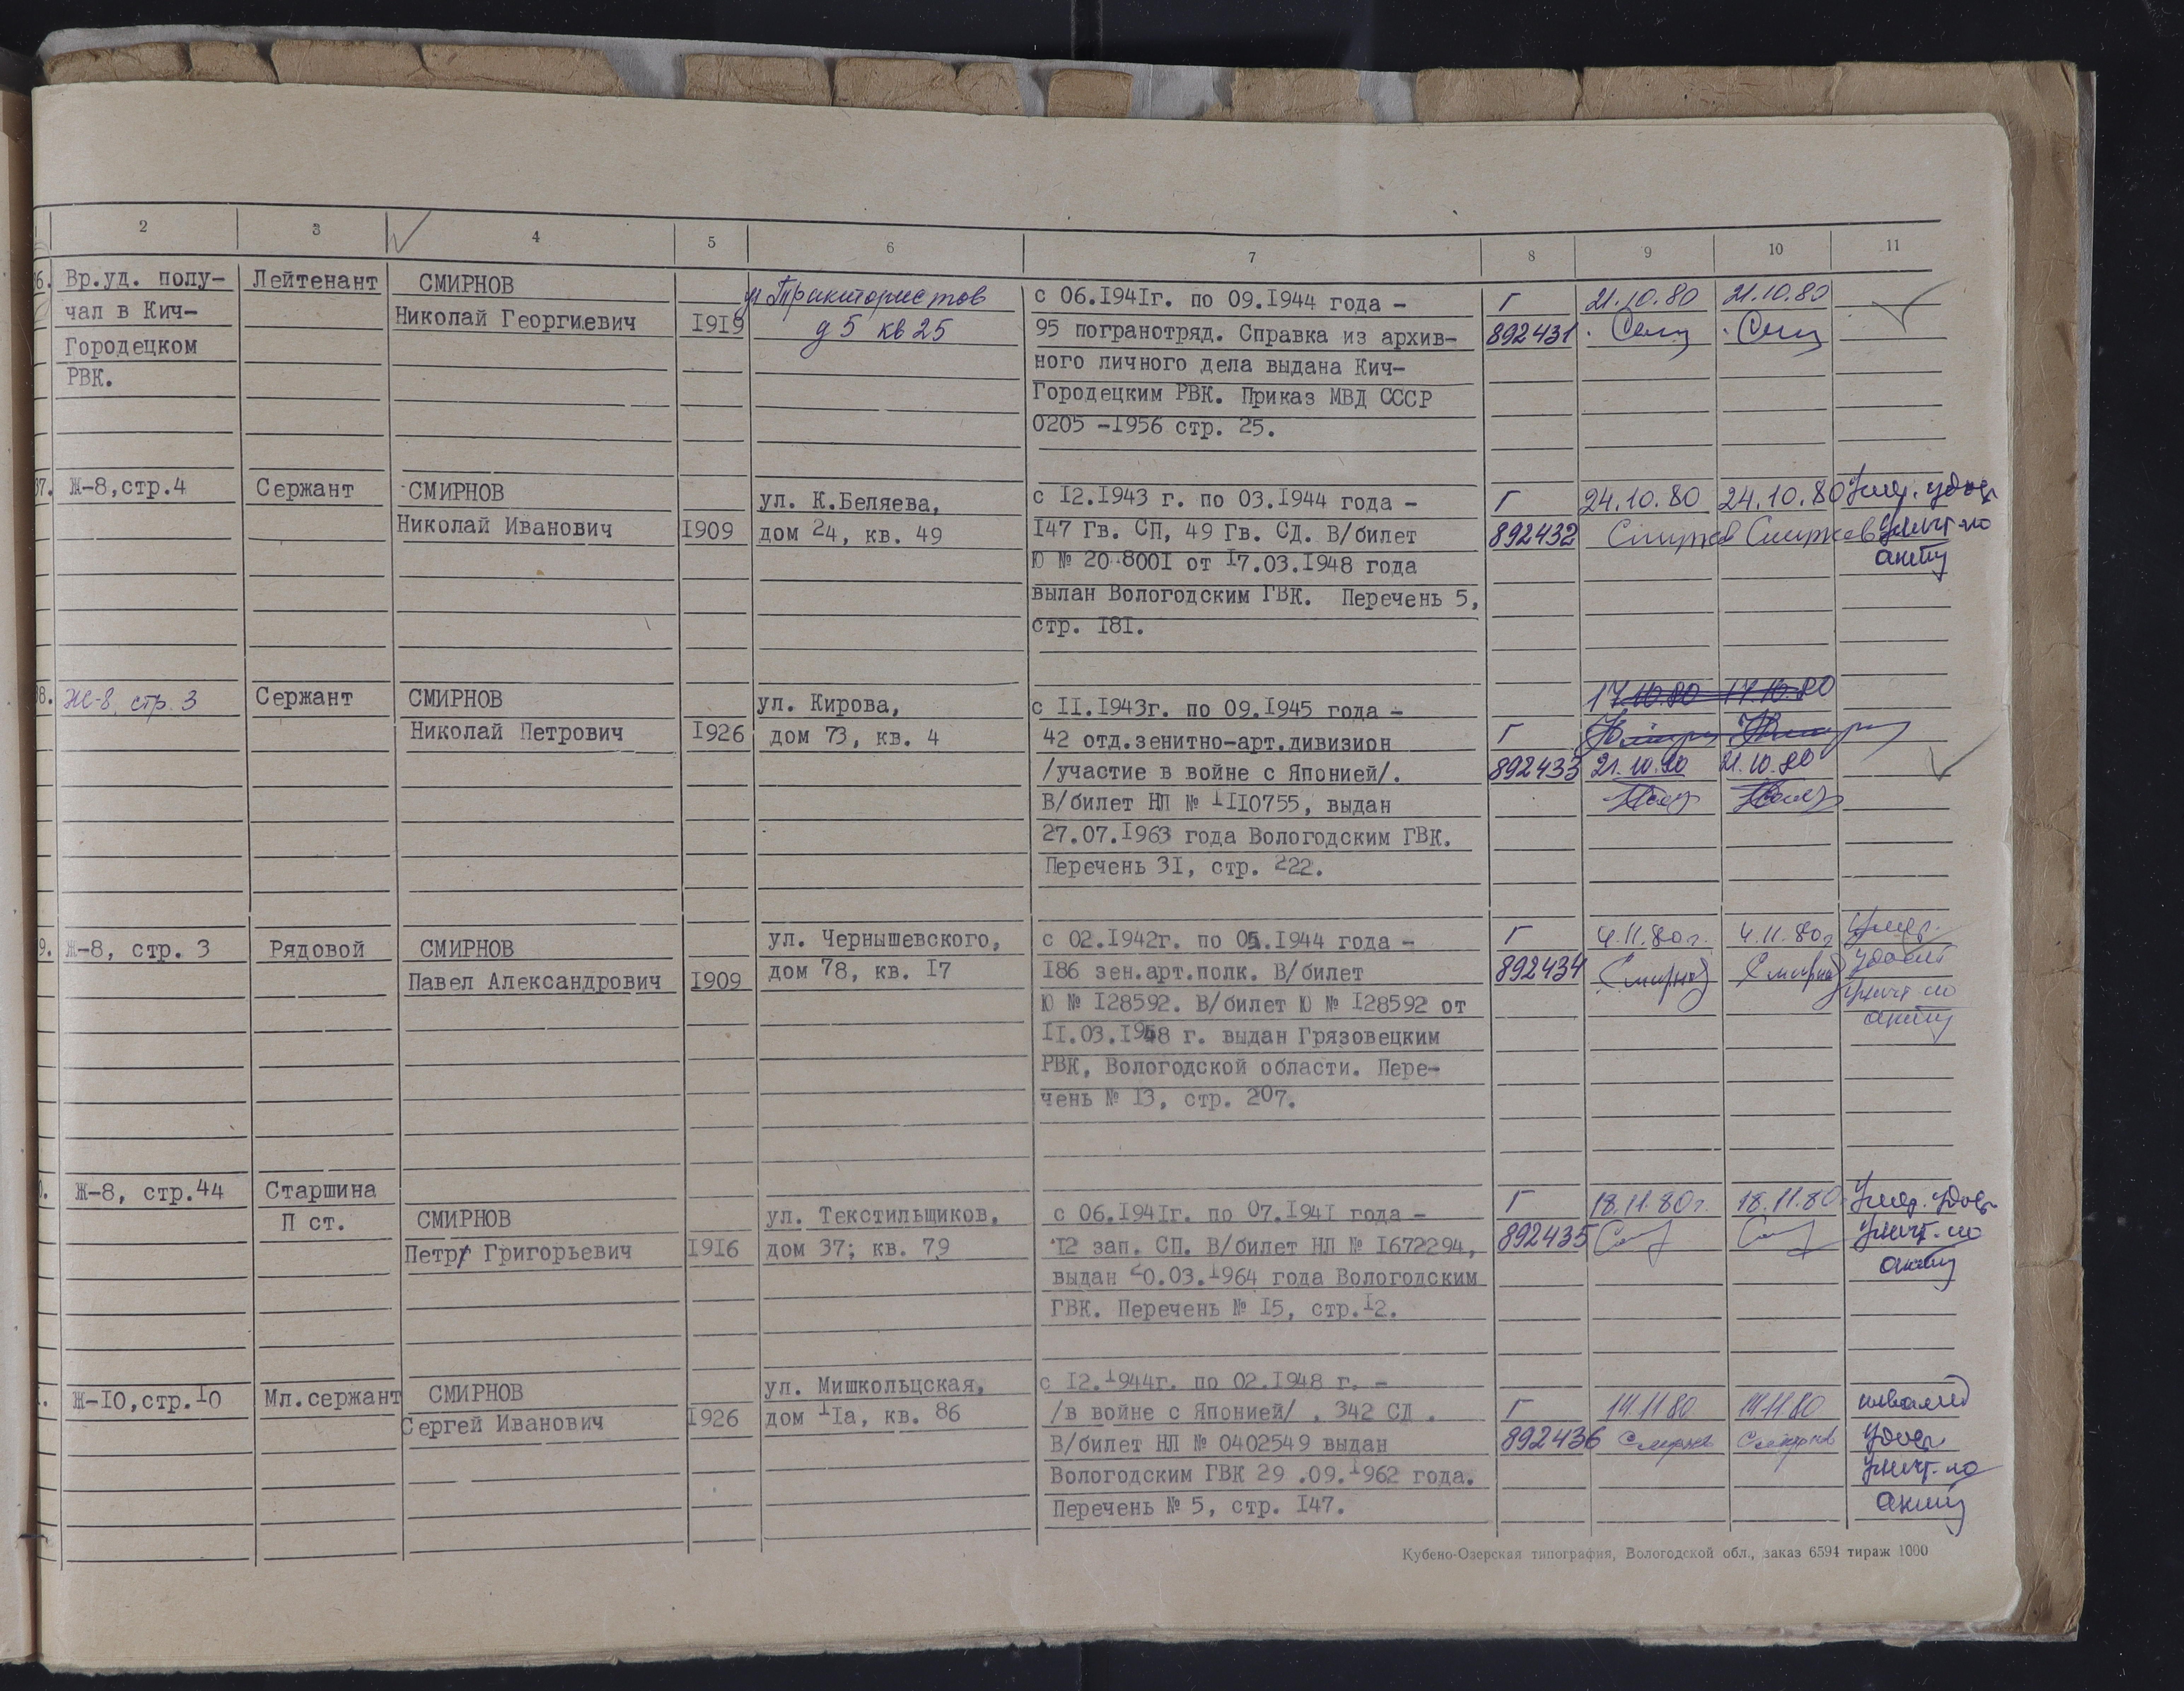 2 3 4 5 6 7 8 9 10 11
6. Вр.уд. полу- Лейтенант СМИРНОВ ул Трактористов с 06.1941г. по 09.1944 года - Г 21.10.80 21.10.80
чал в Кич- Николай Георгиевич 1919 д 5 кв 25 95 погранотряд. Справка из архив- 892431
Городецком ного личного дела выдана Кич-
РВК. Городецким РВК. Приказ МВД СССР
0205 -1956 стр. 25.
7. Ж-8,стр.4 Сержант СМИРНОВ ул. К.Беляева, с 12.1943 г. по 03.1944 года - Г 24.10.80 24.10.80 Умер. удов
Николай Иванович 1909 дом 24, кв. 49 147 Гв. СП, 49 Гв. СД. В/билет 892432 Смирнов Смирнов уничт по
Ю № 20 8001 от 17.03.1948 года акту
выпан Вологодским ГВК. Перечень 5,
стр. 181.
8. Ж-8, стр. 3 Сержант СМИРНОВ ул. Кирова, с 11.1943г. по 09.1945 года - 17.10.80 17.10.80
Николай Петрович 1926 дом 73, кв. 4 42 отд.зенитно-арт.дивизион Г
/участие в войне с Японией/. 892433 21.10.80 21.10.80
В/билет НЛ № 1110755, выдан
27.07.1963 года Вологодским ГВК.
Перечень 31, стр. 222.
9. Ж-8, стр. 3 Рядовой СМИРНОВ ул. Чернышевского, с 02.1942г. по 05.1944 года - Г 4.11.80г. 4.11.80г Умер.
Павел Александрович 1909 дом 78, кв. 17 186 зен.арт.полк. В/билет 892434 Смирнов Смирнов
Ю № 128592. В/билет Ю № 128592 от уничт по
11.03.1948 г. выдан Грязовецким акту
РВК, Вологодской области. Пере-
чень № 13, стр. 207.
Ж-8, стр.44 Старшина Г 18.11.80г. 18.11.80 Умер. удов
П ст. СМИРНОВ ул. Текстильщиков, с 06.1941г. по 07.1941 года - 892435 уничт. по
Петр Григорьевич 1916 дом 37; кв. 79 12 зап. СП. В/билет НЛ № 1672294, акту
выдан 20.03.1964 года Вологодским
ГВК. Перечень № 15, стр.12.
Ж-10,стр.10 Мл.сержант СМИРНОВ ул. Мишкольцская, с 12.1944г. по 02.1948 г. - Г 14.11.80 14.11.80 инвалид
Сергей Иванович 1926 дом 11а, кв. 86 /в войне с Японией/ . 342 СД . 892436 Смирнов Смирнов удов
В/билет НЛ № 0402549 выдан уничт. по
Вологодским ГВК 29 .09.1962 года. акту
Перечень № 5, стр. 147.
Кубено-Озерская типография, Вологодской обл., заказ 6594 тираж 1000